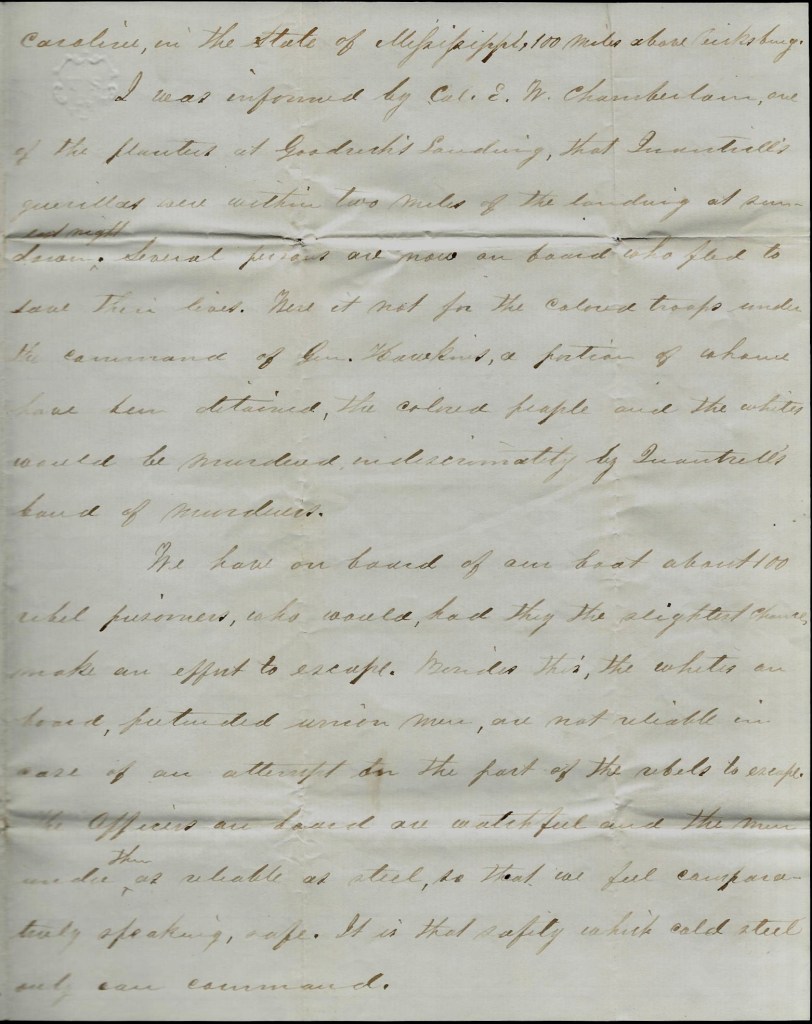 Caroline, in the State of Mississippi, 100 miles above Vicksburg.
I was informed by Col. E. W. Chamberlain, one
of the planters at Goodrich's Landing, that Quantrell's
guerillas were within two miles of the landing at sun-
last night
down. Several persons are now on board who fled to
save their lives. Were it not for the colored troops under
the command of Gen. Hawkins, a portion of whome
have been detained, the colored people and the whites
would be murdered indiscrimately by Quantrell's
band of murderers.
We have on board of our boat about 100
rebel prisoners, who would, had they the slightest chance,
make an effort to escape. Besides this, the whites on
board, pretended union men, are not reliable in
case of an attempt on the part of the rebels to escape.
The Officers on board are watchful and the men
them
under as reliable as steel, so that we feel compara-
tively speaking, safe. It is that safety which cold steel
only can command.